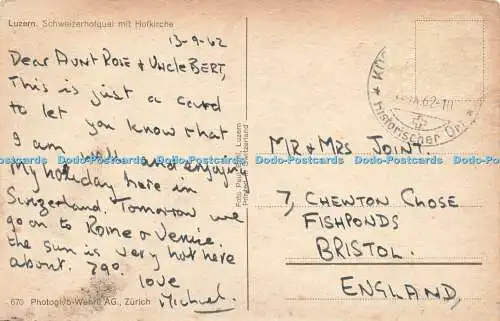 Luzern. Schweizerhofquai mit Hofkirche
13-9-62
Dear AUNT ROSE & UNCLE BERT,
This is just a card
to let you know that
I am well and enjoying
My holiday here in
Switzerland. Tomorrow we
go on to Rome & Venice.
the sun is very hot here
about. 79º. love
Michael.
670 Photoglob-Wehrli AG., Zürich
Luzern
Printed in Switzerland
62-11
Historischer Ort
MR & MRS JOINT.
7, CHEWTON CLOSE
FISHPONDS
BRISTOL.
ENGLAND,
Dodo-Postcards Dodo-Postcards Dodo-Postcards Dodo-Postcards Dodo-Postcards Dodo-Postcards